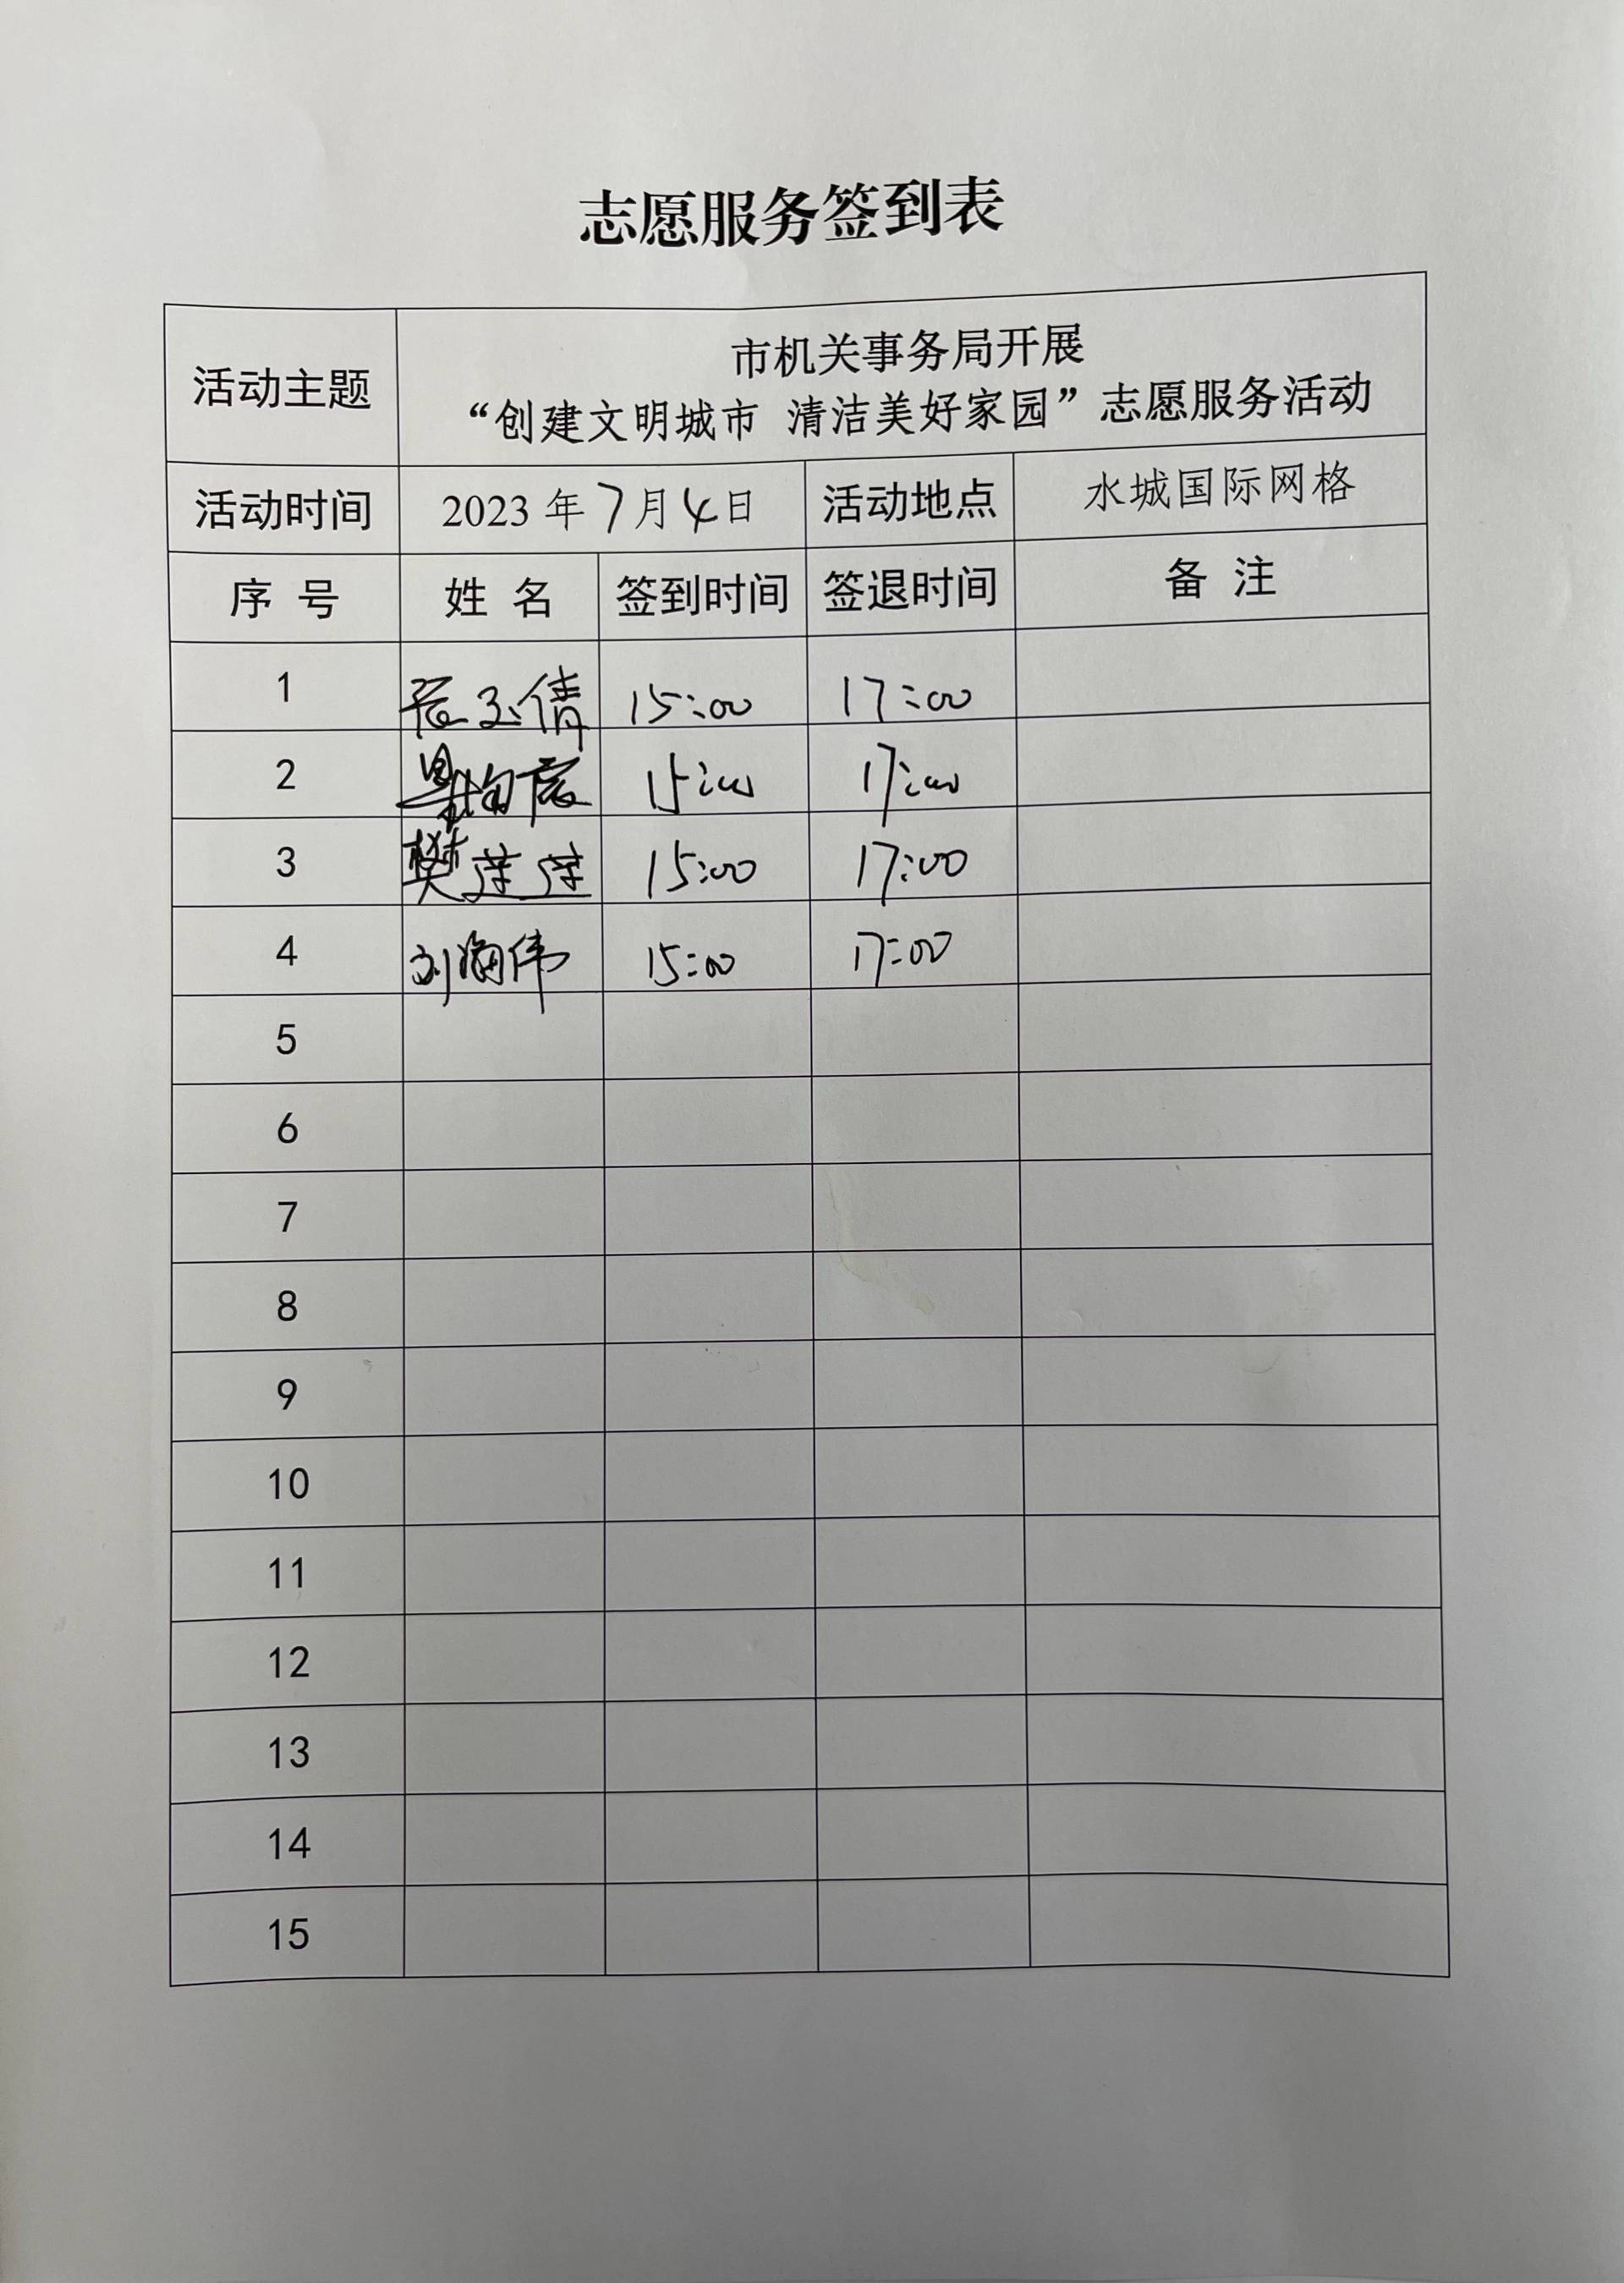 志愿服务签到表
活动主题
市机关事务局开展
“创建文明城市 清洁美好家园”志愿服务活动
活动时间 2023年7月4日 活动地点 水城国际网格
序 号 姓 名 签到时间 签退时间 备 注
1 玉倩 15:00 17:00
2 15:00 17:00
3 樊萍萍 15:00 17:00
4 刘海伟 15:00 17:00
5
6
7
8
9
10
11
12
13
14
15